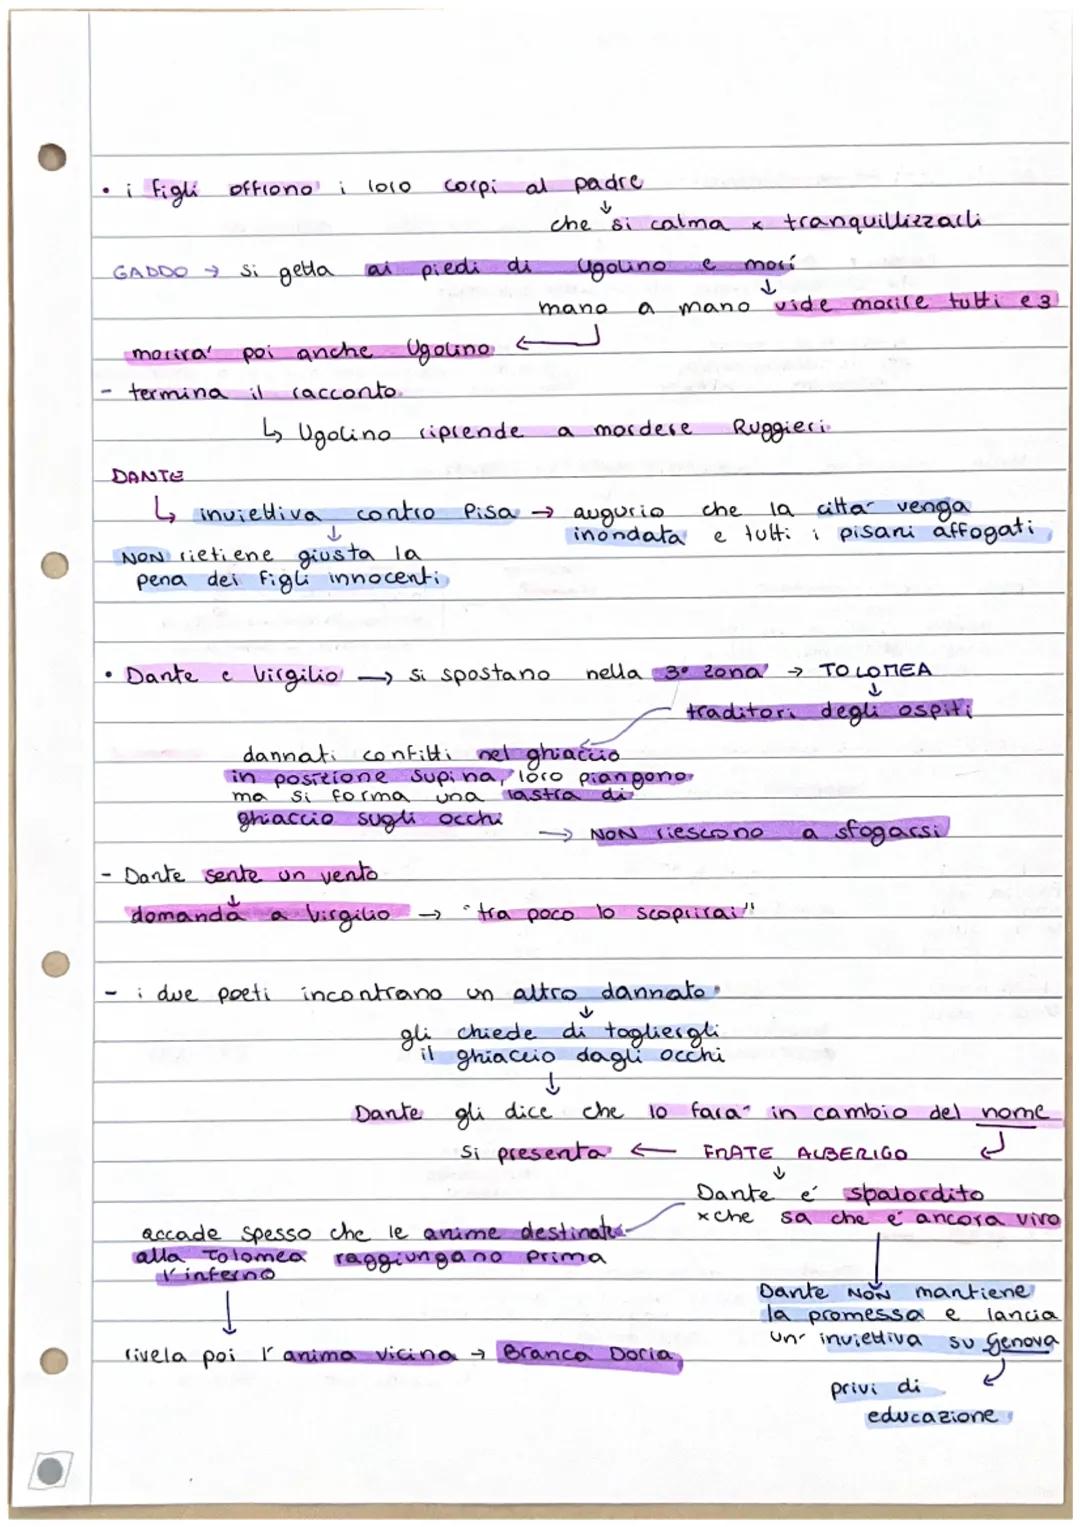 • i figli offrono i loro corpi al padre
↓
che si calma x tranquillizzarli
GADDO → si getta ai piedi di Ugolino e morì
↓
mano a mano vide morire tutti e 3
morira' poi anche Ugolino ←
- termina il racconto
↳ Ugolino riprende a mordere Ruggieri
DANTE
↳ invettiva contro Pisa → augurio che la citta' venga
inondata e tutti i pisani affogati
↓
NON rietiene giusta la
pena dei figli innocenti
• Dante e Virgilio → si spostano nella 3° zona → TOLOMEA
↓
traditori degli ospiti
dannati confitti nel ghiaccio
in posizione supina, loro piangono
ma si forma una lastra di
ghiaccio sugli occhi
→ NON riescono a sfogarsi
- Dante sente un vento
↓
domanda a Virgilio → "tra poco lo scoprirai"
- i due poeti incontrano un altro dannato
↓
gli chiede di togliergli
il ghiaccio dagli occhi
↓
Dante gli dice che lo fara' in cambio del nome
si presenta ← FRATE ALBERIGO
↓
Dante e' spalordito
xche sa che e' ancora vivo
accade spesso che le anime destinate
alla Tolomea raggiungano prima
l'inferno
↓
Dante NON mantiene
la promessa e lancia
un' invettiva su Genova
rivela poi l'anima vicina → Branca Doria
privi di
educazione